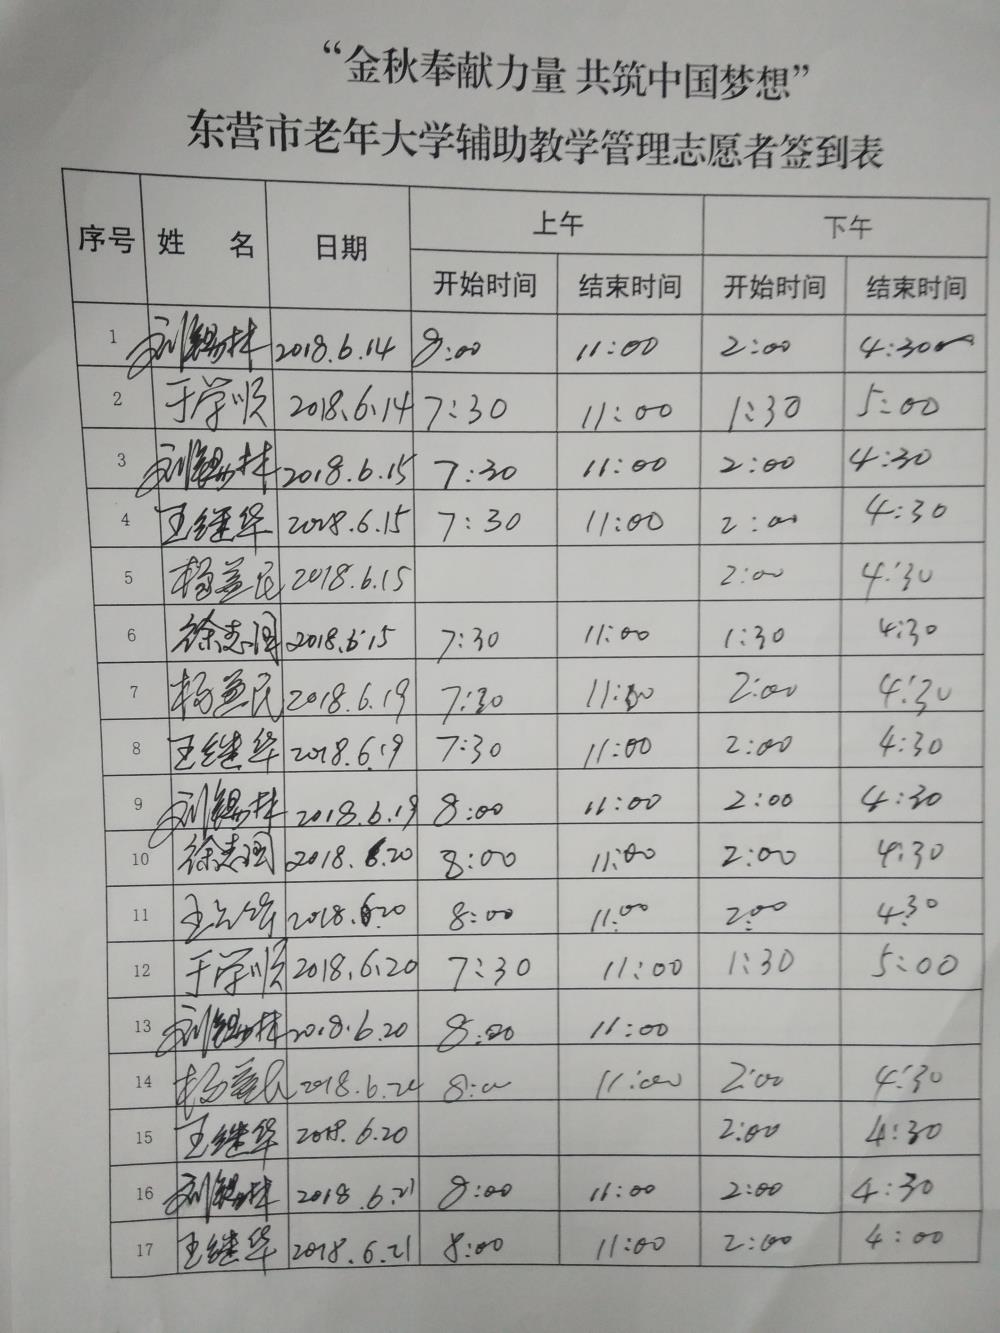 “金秋奉献力量 共筑中国梦想”
东营市老年大学辅助教学管理志愿者签到表
序号 姓 名 日期 上午 下午
开始时间 结束时间 开始时间 结束时间
1 刘锡林 2018.6.14 8:00 11:00 2:00 4:30
2 于学顺 2018.6.14 7:30 11:00 1:30 5:00
3 刘锡林 2018.6.15 7:30 11:00 2:00 4:30
4 王继华 2018.6.15 7:30 11:00 2:00 4:30
5 杨益民 2018.6.15 2:00 4:30
6 徐志国 2018.6.15 7:30 11:00 1:30 4:30
7 杨益民 2018.6.19 7:30 11:00 2:00 4:30
8 王继华 2018.6.19 7:30 11:00 2:00 4:30
9 刘锡林 2018.6.19 8:00 11:00 2:00 4:30
10 徐志国 2018.6.20 8:00 11:00 2:00 4:30
11 王 2018.6.20 8:00 11:00 2:00 4:30
12 于学顺 2018.6.20 7:30 11:00 1:30 5:00
13 刘锡林 2018.6.20 8:00 11:00
14 杨益民 2018.6.20 8:00 11:00 2:00 4:30
15 王继华 2018.6.20 2:00 4:30
16 刘锡林 2018.6.21 8:00 11:00 2:00 4:30
17 王继华 2018.6.21 8:00 11:00 2:00 4:00